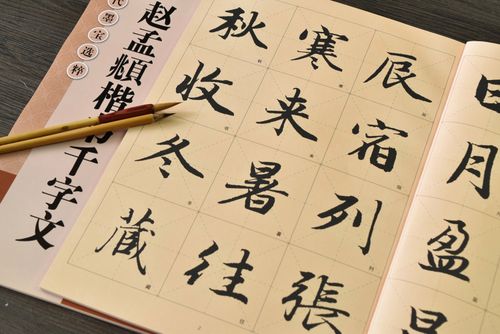 代墨宝选粹
赵孟頫楷书千字文
日月盈
辰宿列張
寒来暑往
秋收冬藏